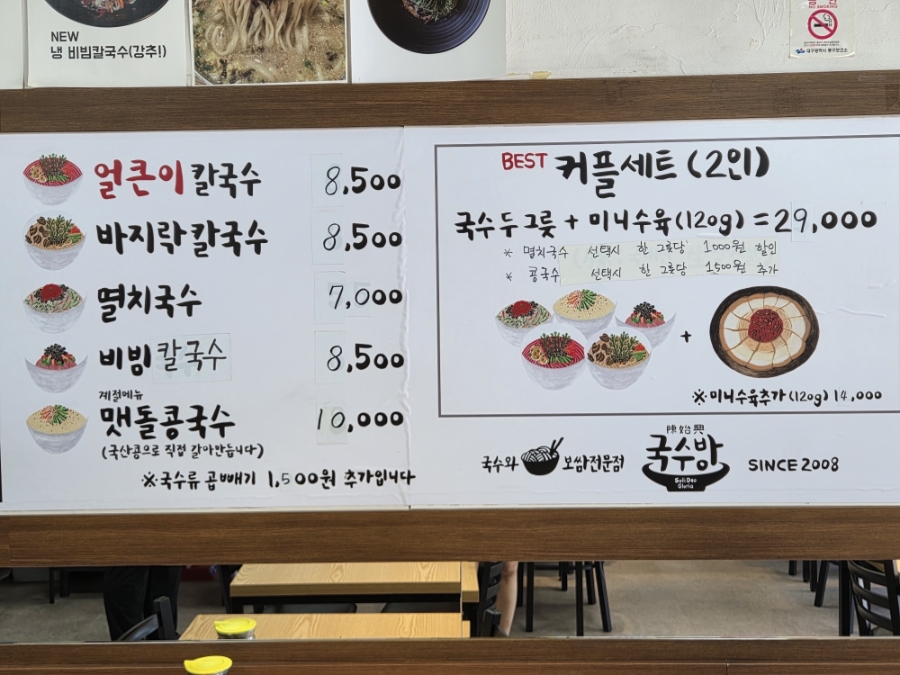 NEW
냉 비빔칼국수(강추!)
얼큰이 칼국수 8,500
바지락 칼국수 8,500
멸치국수 7,000
비빔 칼국수 8,500
계절메뉴
맷돌콩국수 10,000
(국산콩으로 직접 갈아만듭니다)
※국수류 곱빼기 1,500원 추가입니다
BEST 커플세트 (2인)
국수 두 그릇 + 미니수육(120g) = 29,000
* 멸치국수 선택시 한 그릇당 1000원 할인
* 콩국수 선택시 한 그릇당 1500원 추가
+
※미니수육추가(120g) 14,000
국수와 보쌈전문점
국수방
Soli Deo
Gloria
SINCE 2008
NO SMOKING